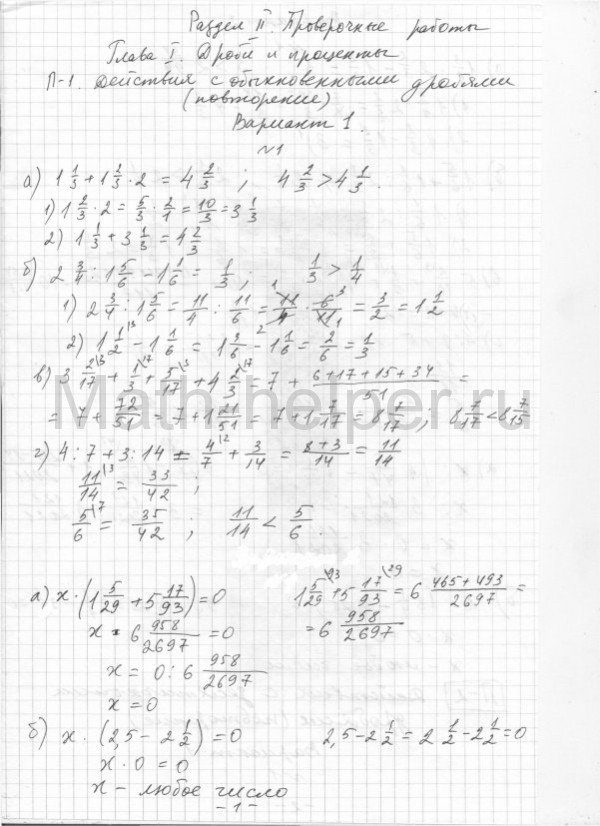 Раздел II. Проверочные работы
Глава I. Дроби и проценты
П-1. Действия с обыкновенными дробями
(повторение)
Вариант 1.
№1
а) 1 1/3 + 1 2/3 · 2 = 4 2/3 ; 4 2/3 > 4 1/3.
1) 1 2/3 · 2 = 5/3 · 2/1 = 10/3 = 3 1/3
2) 1 1/3 + 3 1/3 = 4 2/3
б) 2 3/4 : 1 5/6 - 1 1/6 = 1/3 ; 1/3 > 1/4
1) 2 3/4 : 1 5/6 = 11/4 : 11/6 = 11/4 · 6/11 = 3/2 = 1 1/2
2) 1 1/2 - 1 1/6 = 1 3/6 - 1 1/6 = 2/6 = 1/3
в) 3 2/17 + 1/3 + 5/17 + 4 2/3 = 7 + (6+17+15+34)/51 =
= 7 + 72/51 = 7 + 1 21/51 = 7 + 1 7/17 = 8 7/17 ; 8 7/17 < 8 7/15
г) 4 : 7 + 3 : 14 = 4/7 + 3/14 = (8+3)/14 = 11/14
11/14 = 33/42 ;
5/6 = 35/42 ; 11/14 < 5/6 .
а) x · (1 5/29 + 5 17/93) = 0 1 5/29 + 5 17/93 = 6 (465+493)/2697 =
x · 6 958/2697 = 0 = 6 958/2697
x = 0 : 6 958/2697
x = 0
б) x · (2,5 - 2 1/2) = 0 2,5 - 2 1/2 = 2 1/2 - 2 1/2 = 0
x · 0 = 0
x - любое число
-1-
Math-helper.ru